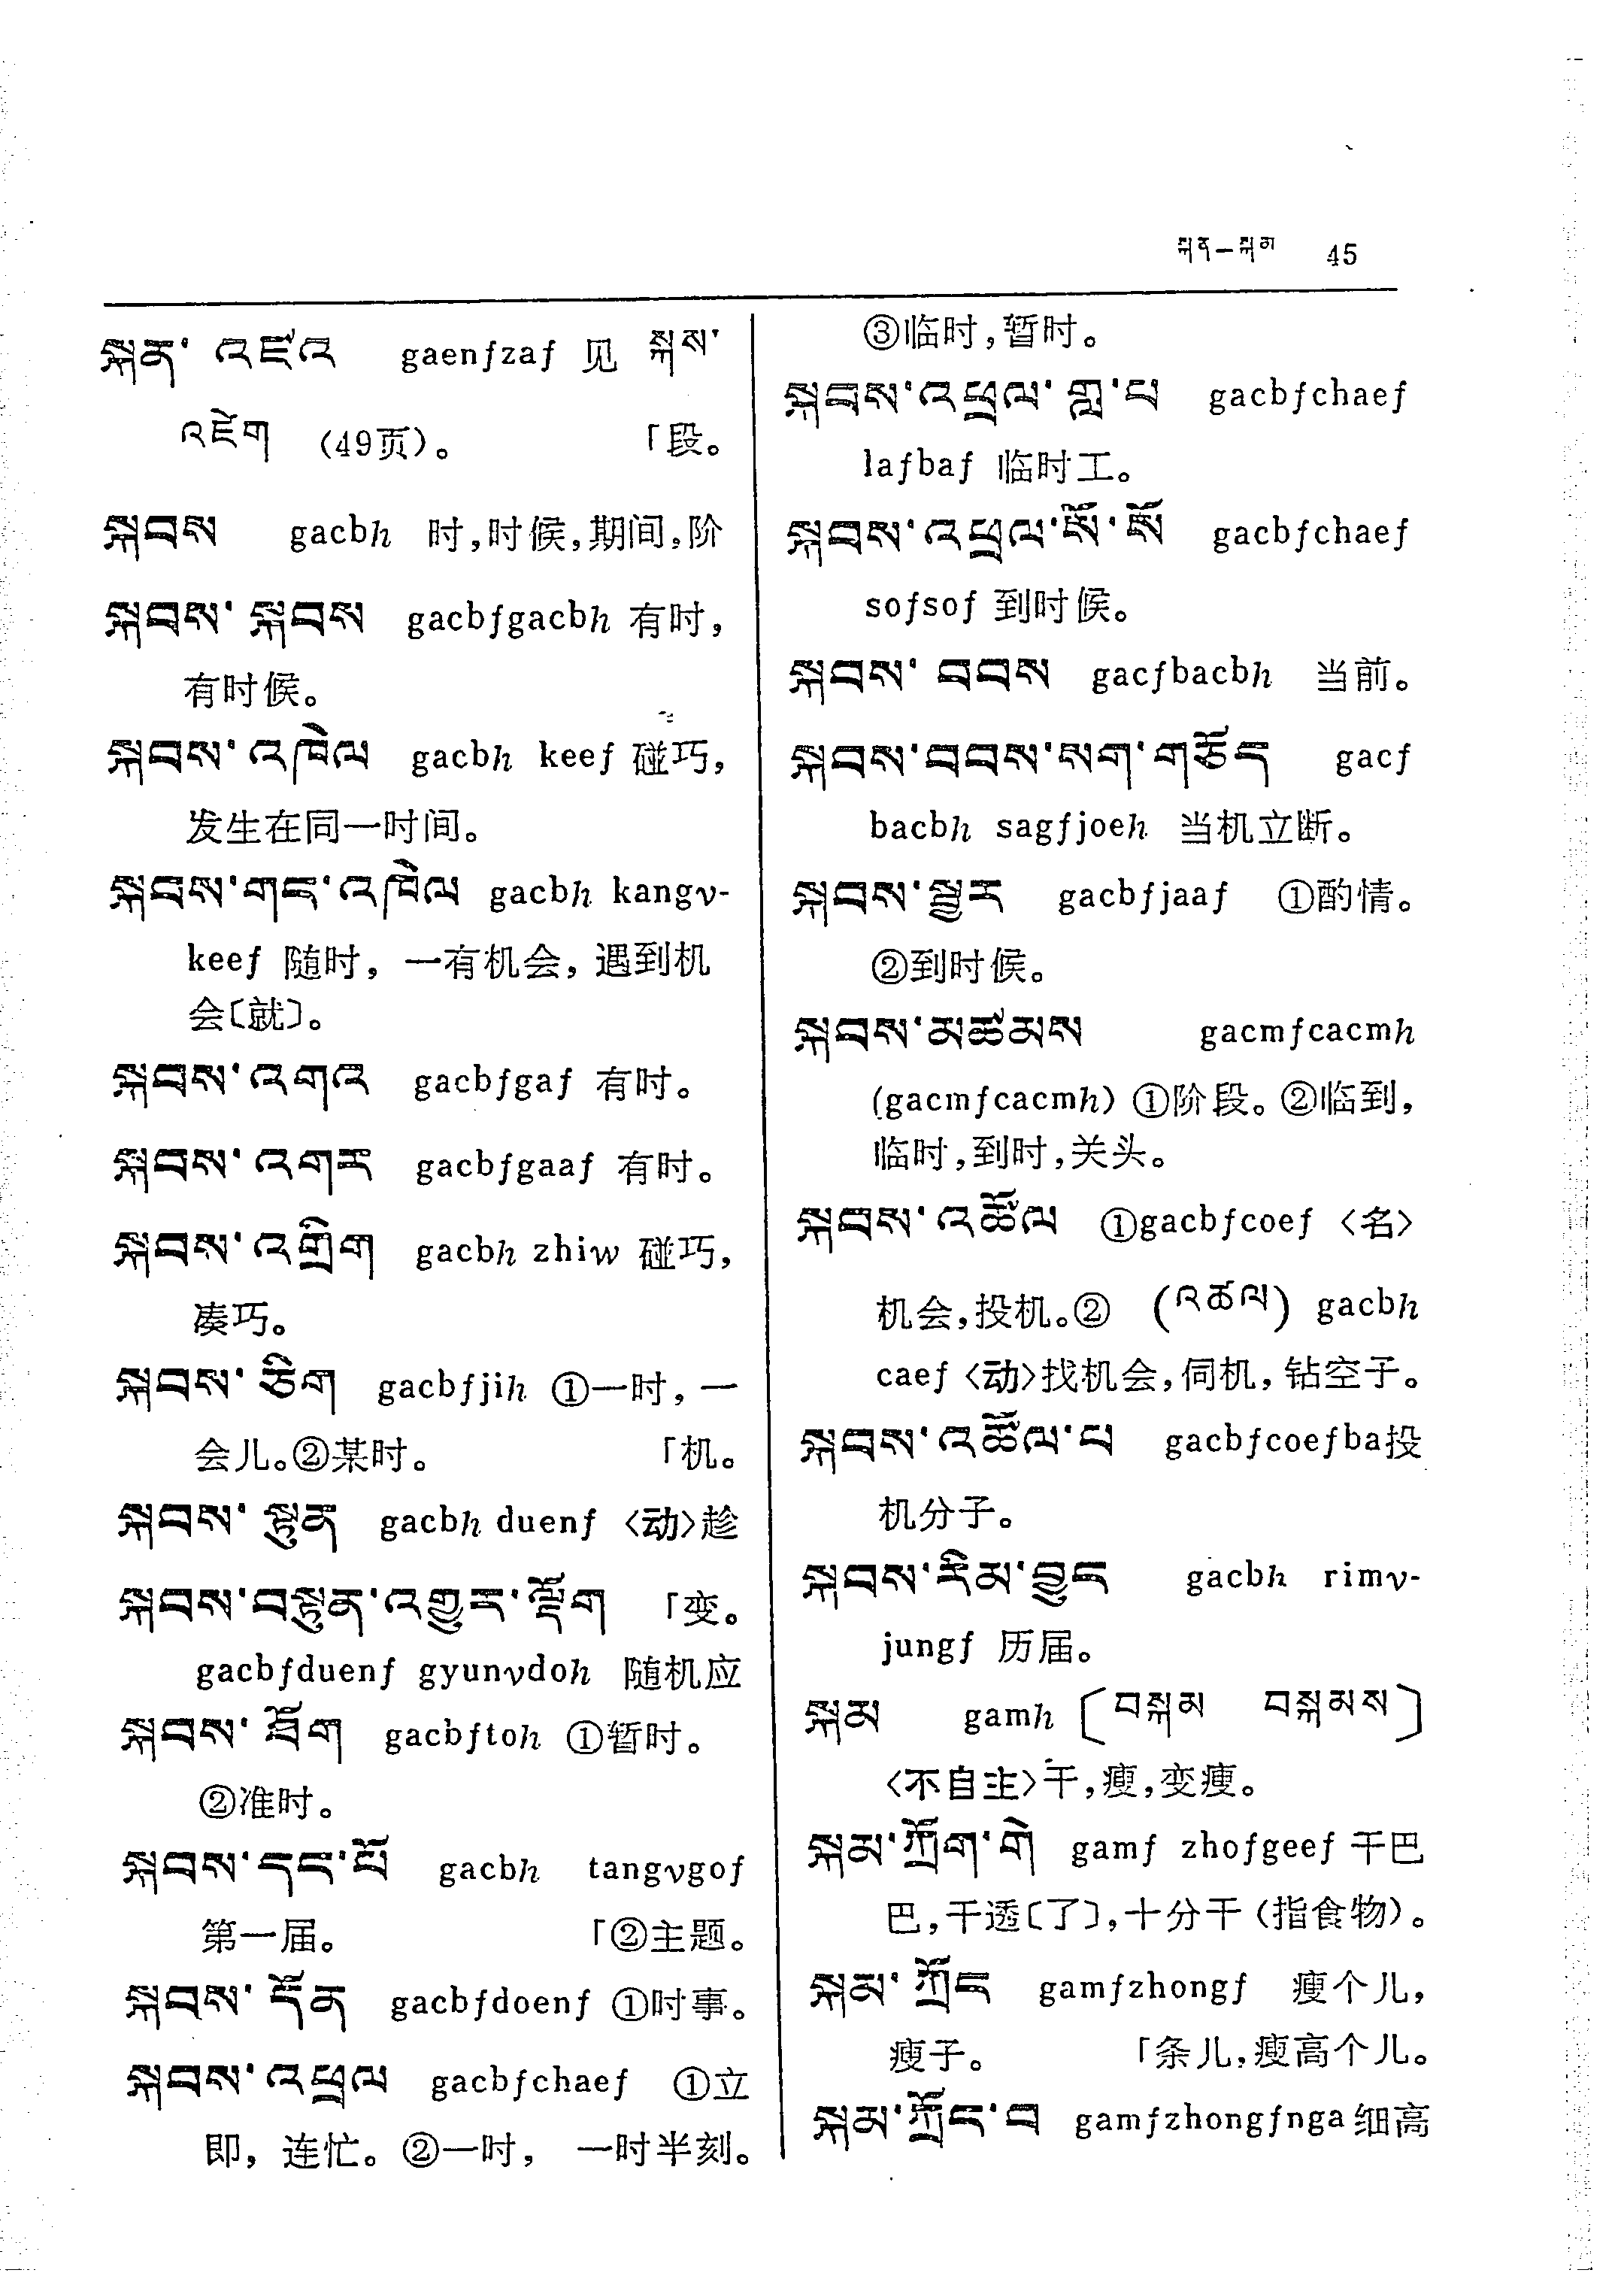 སྐན–སྐམ 45
སྐན་འཛའ gaenfzaf 见 སྐས་
འཛེག (49页)。 「段。
སྐབས gacbh 时,时候,期间,阶
སྐབས་སྐབས gacbfgacbh 有时,
有时候。
སྐབས་འཁེལ gacbh keef 碰巧,
发生在同一时间。
སྐབས་གང་འཁེལ gacbh kangv-
keef 随时, 一有机会, 遇到机
会〔就〕。
སྐབས་འགའ gacbfgaf 有时。
སྐབས་འགར gacbfgaaf 有时。
སྐབས་འགྲིག gacbh zhiw 碰巧,
凑巧。
སྐབས་ཅིག gacbfjih ①一时, 一
会儿。②某时。 「机。
སྐབས་སྟུན gacbh duenf 〈动〉趁
སྐབས་བསྟུན་འགྱུར་ལྡོག 「变。
gacbfduenf gyunvdoh 随机应
སྐབས་ཐོག gacbftoh ①暂时。
②准时。
སྐབས་དང་པོ gacbh tangvgof
第一届。 「②主题。
སྐབས་དོན gacbfdoenf ①时事。
སྐབས་འཕྲལ gacbfchaef ①立
即, 连忙。②一时, 一时半刻。
③临时,暂时。
སྐབས་འཕྲལ་གླ་པ gacbfchaef
lafbaf 临时工。
སྐབས་འཕྲལ་སོ་སོ gacbfchaef
sofsof 到时候。
སྐབས་བབས gacfbacbh 当前。
སྐབས་བབས་སག་གཅོད gacf
bacbh sagfjoeh 当机立断。
སྐབས་སྦྱར gacbfjaaf ①酌情。
②到时候。
སྐབས་མཚམས gacmfcacmh
(gacmfcacmh) ①阶段。②临到,
临时,到时,关头。
སྐབས་འཚོལ ①gacbfcoef 〈名〉
机会,投机。② (འཚལ) gacbh
caef 〈动〉找机会,伺机, 钻空子。
སྐབས་འཚོལ་པ gacbfcoefba投
机分子。
སྐབས་རིམ་བྱུང gacbh rimv-
jungf 历届。
སྐམ gamh 〔བསྐམ བསྐམས〕
〈不自主〉干,瘦,变瘦。
སྐམ་ཀྲོག་གེ gamf zhofgeef 干巴
巴,干透〔了〕,十分干 (指食物)。
སྐམ་ཀྲོང gamfzhongf 瘦个儿,
瘦子。 「条儿,瘦高个儿。
སྐམ་ཀྲོང་བ gamfzhongfnga 细高